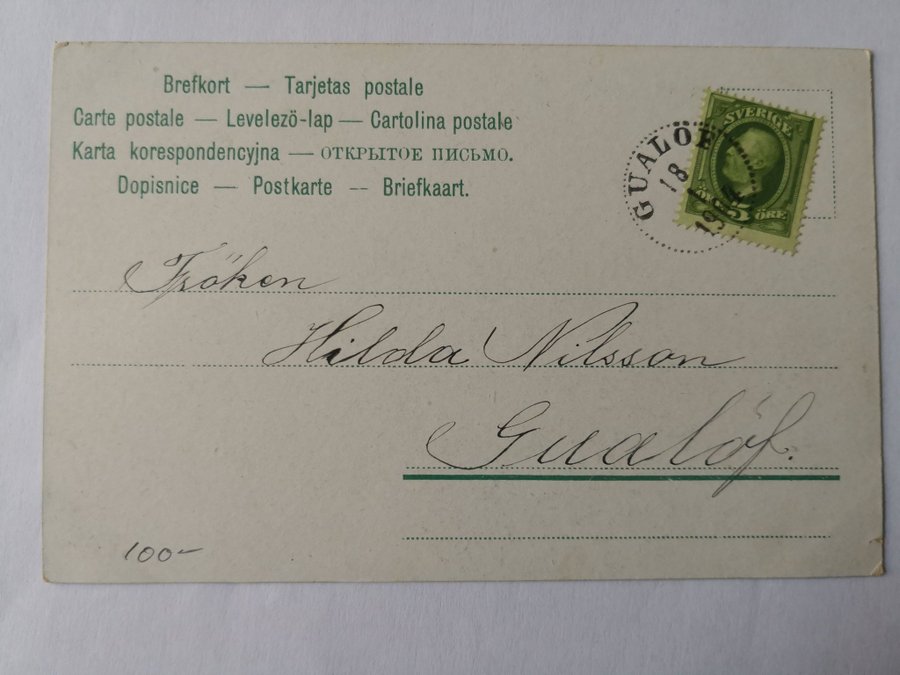 Brefkort — Tarjetas postale
Carte postale — Levelezö-lap — Cartolina postale
Karta korespondencyjna — ОТКРЫТОЕ ПИСЬМО.
Dopisnice — Postkarte — Briefkaart.
GUALÖF
18
SVERIGE
5 ÖRE
Fröken
Hilda Nilsson
Gualöf.
100-